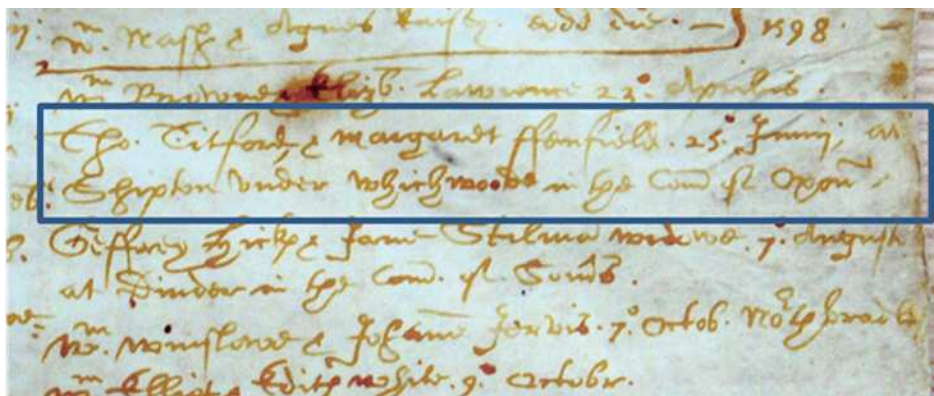 Wm. Mash & Agnes eode die. — } 1598.
Wm Browne & Elizb. Lawrence 23° Aprilis.
Tho. Titford, & Margaret ffenfield. 25° Junii, at
Shipton vnder whichwoode in the Com̄ of Oxon̄
Geffrey Hickp & Jane Stilma widowe. 7° August
at Dinder in the Com̄. of Som̄s.
Wm. Winslowe & Johane Jervis. 7° Octob.
Wm Elliot & Edith White. 9° Octobr.